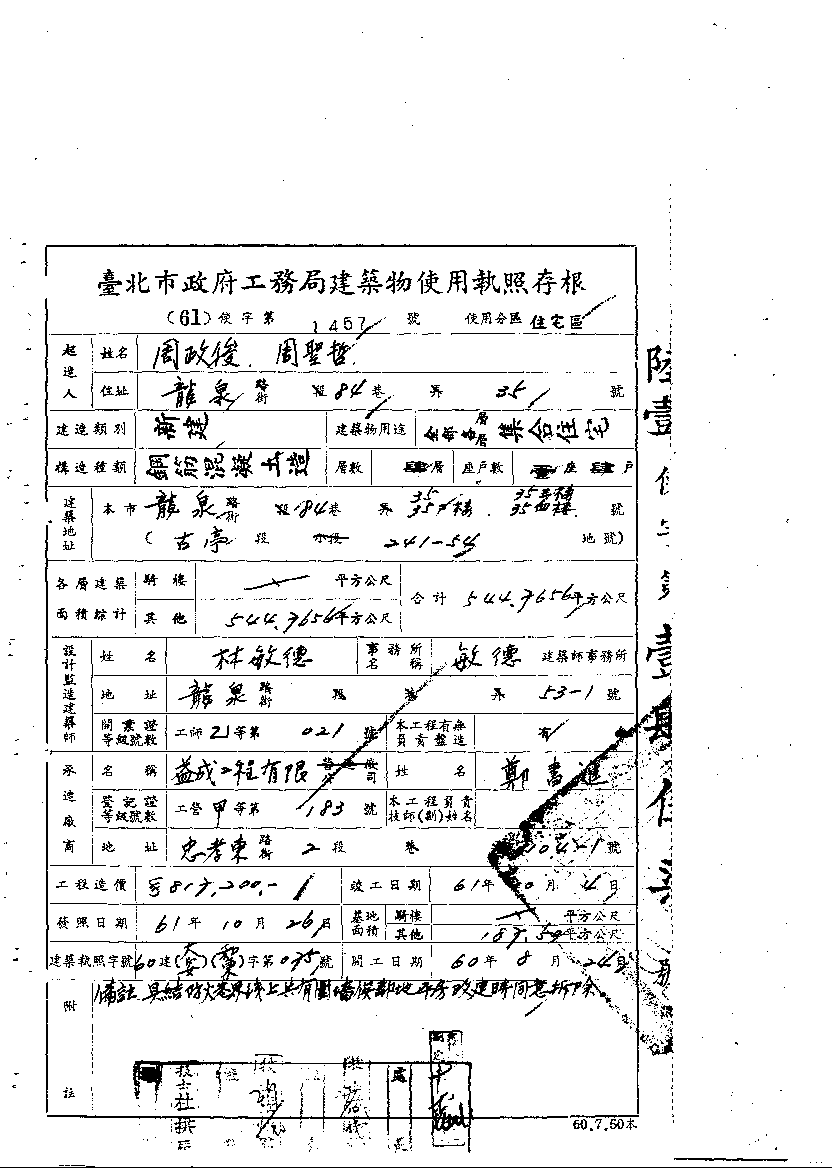 臺北市政府工務局建築物使用執照存根
(61)使字第 1457 號 使用分區 住宅區
起造人 姓名 周政俊、周聖哲
住址 龍泉 路街 段 84 巷 弄 35 號
建造類別 新建 建築物用途 全部各層 集合住宅
構造種類 鋼筋混凝土造 層數 肆層 座戶數 壹座 肆戶
建築地址 本市 龍泉 路街 段 84 巷 弄 35 號
(古亭 段 小段 241-54 地號)
各層建築面積綜計 騎樓 平方公尺 合計 544.7656 平方公尺
其他 544.7656 平方公尺
設計監造建築師 姓名 林敏德 事務所名稱 敏德 建築師事務所
地址 龍泉 路街 段 巷 弄 53-1 號
開業證等級號數 工師 乙等第 021 號 本工程有無負責監造 有
承造廠商 名稱 益成工程有限 公司 姓名 鄭書進
登記證等級號數 工營 甲等第 183 號 本工程負責技師(副)姓名
地址 忠孝東 路街 2 段 巷 04-1 號
工程造價 817,200.- 竣工日期 61 年 10 月 4 日
發照日期 61 年 10 月 26 日 基地面積 騎樓 平方公尺
其他 187.50 平方公尺
建築執照字號 60 建 字第 035 號 開工日期 60 年 8 月 24 日
附註 備註 具結防火巷界線上共有圍牆俟鄰地平房改建時同意拆除
60.7.50本